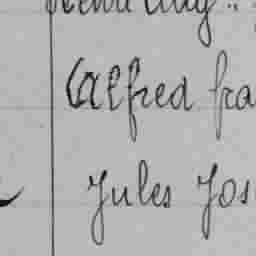 Alfred fra
Jules Jos